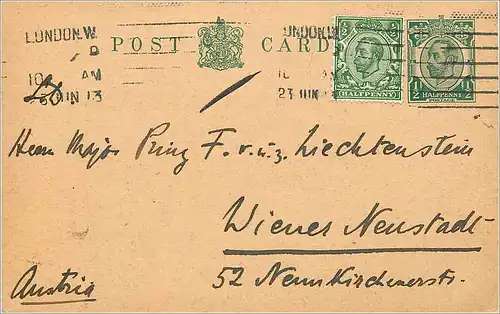 LONDON. W.
D
10 AM
23 JUN 13
POST CARD
LONDON. W.
10 AM
23 JUN 13
½ ½
HALFPENNY
1/2 1/2
HALFPENNY
POSTAGE
Herrn Major Prinz F. v. u. z. Liechtenstein
Wiener Neustadt
52 Neunkirchnerstr.
Austria